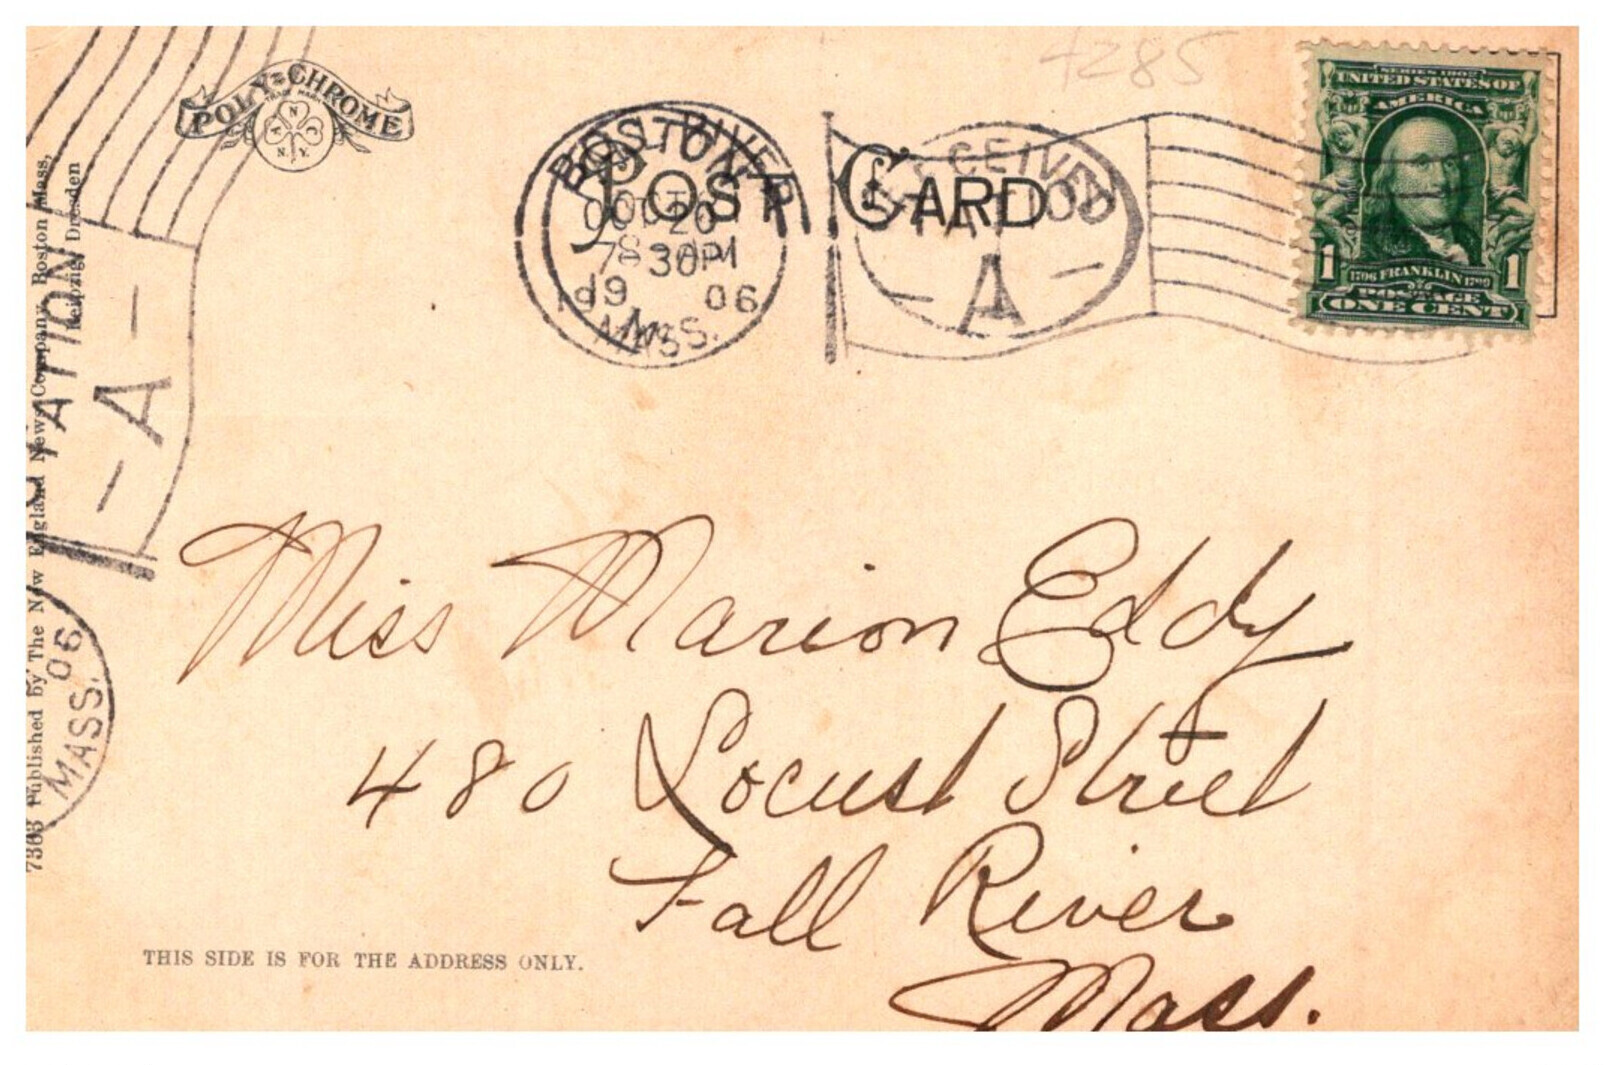 POLY-CHROME
TRADE MARK
A N C
N.Y.
POST CARD
4285
BOSTON
OCT 20
7 30 PM
1906
MASS.
RIVER
RECEIVED
STATION
A
SERIES 1902
UNITED STATES OF
AMERICA
1 1706 FRANKLIN 1790 1
POSTAGE
ONE CENT
STATION
-A-
06
MASS.
7303 Published by The New England News Company, Boston Mass,
Leipzig Dresden
Miss Marion Eddy
480 Locust Street
Fall River
Mass.
THIS SIDE IS FOR THE ADDRESS ONLY.